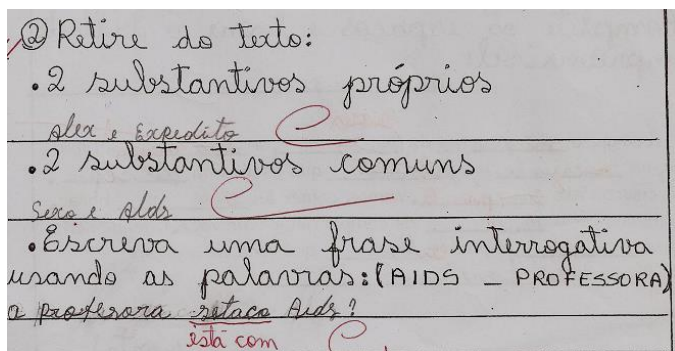 ② Retire do texto:
.2 substantivos próprios
Alex e Expedito C
.2 substantivos comuns
Sexo e Alds C
.Escreva uma frase interrogativa
usando as palavras:(AIDS _ PROFESSORA)
a professora setaco Aids?
está com C